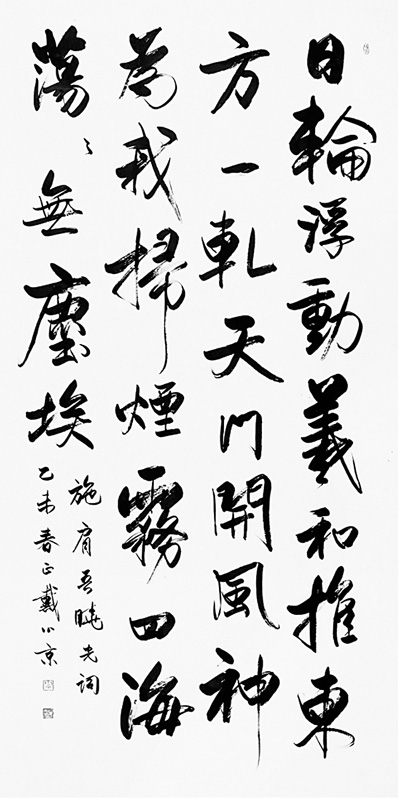 日輪浮動羲和推東
方一軋天門開風神
為我掃煙霧四海
蕩々無塵埃
施肩吾曉光詞
乙未春正戴小京